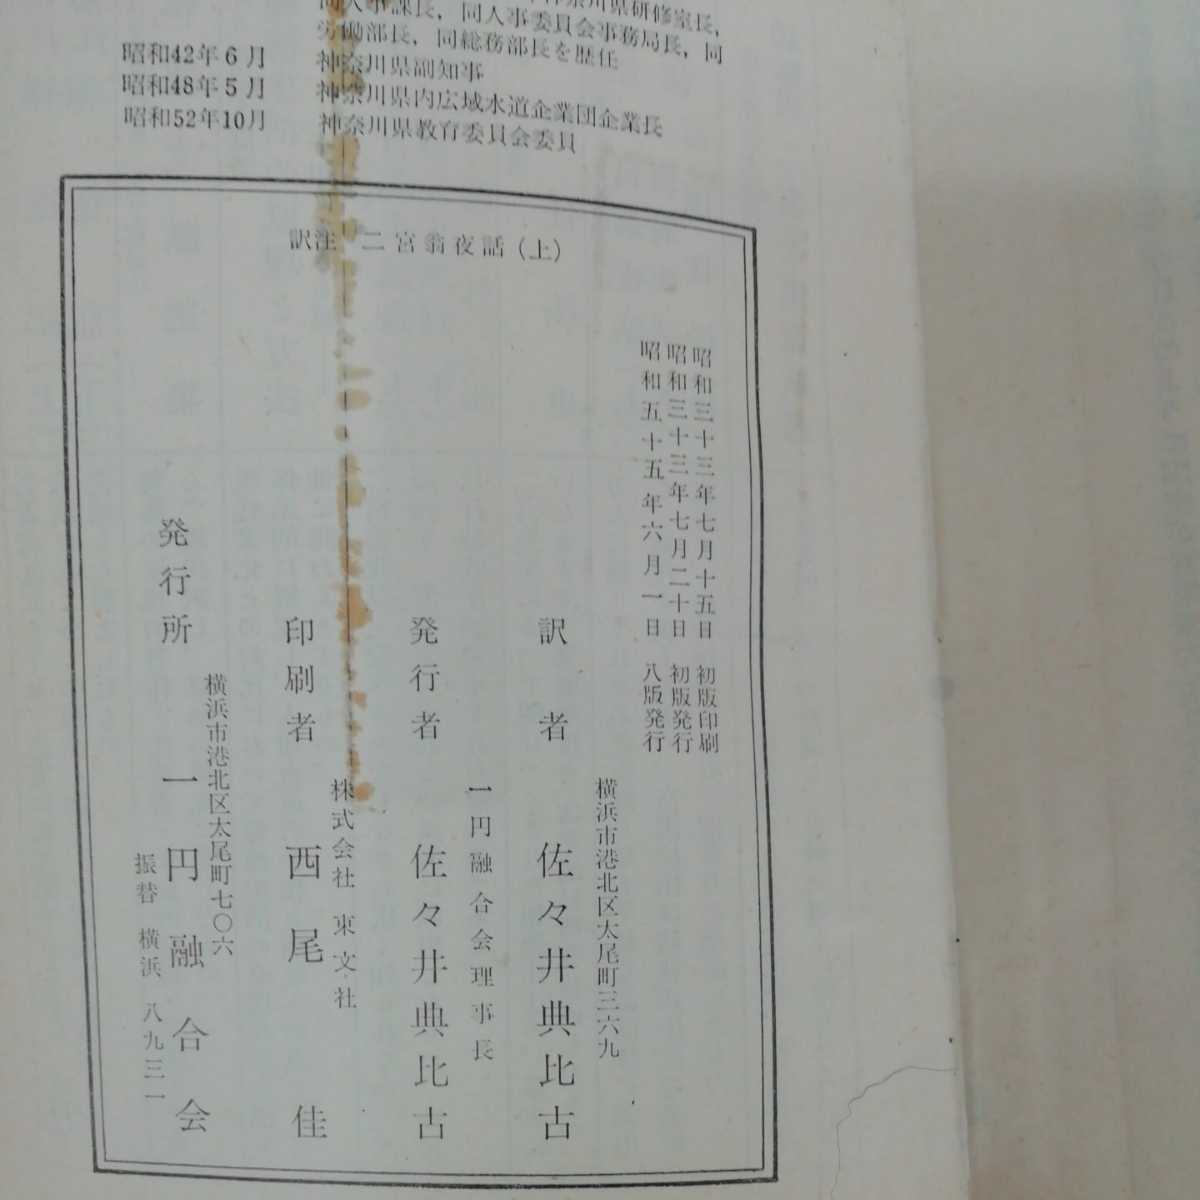 神奈川県研修室長，
同人事課長，同人事委員会事務局長，同
労働部長，同総務部長を歴任
昭和42年6月　神奈川県副知事
昭和48年5月　神奈川県内広域水道企業団企業長
昭和52年10月　神奈川県教育委員会委員
訳注　二宮翁夜話（上）
昭和三十三年七月十五日　初版印刷
昭和三十三年七月二十日　初版発行
昭和五十五年六月一日　八版発行
横浜市港北区太尾町三六九
訳者　佐々井典比古
一円融合会理事長
発行者　佐々井典比古
株式会社　東文社
印刷者　西尾　佳
横浜市港北区太尾町七〇六
発行所　一円融合会
振替　横浜　八九三一